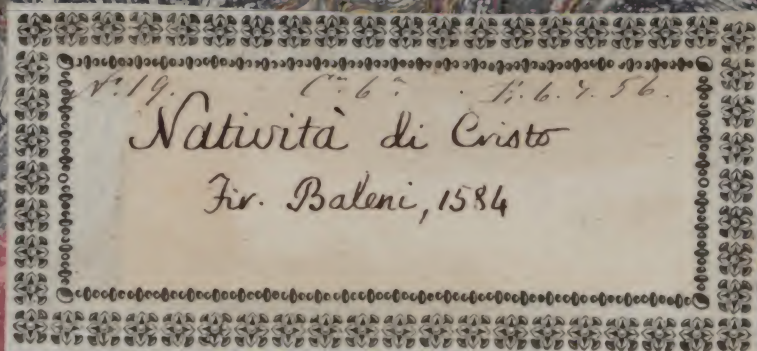 N.° 19. C.ª 6.ª
Natività di Cristo
Fir. Baleni, 1584